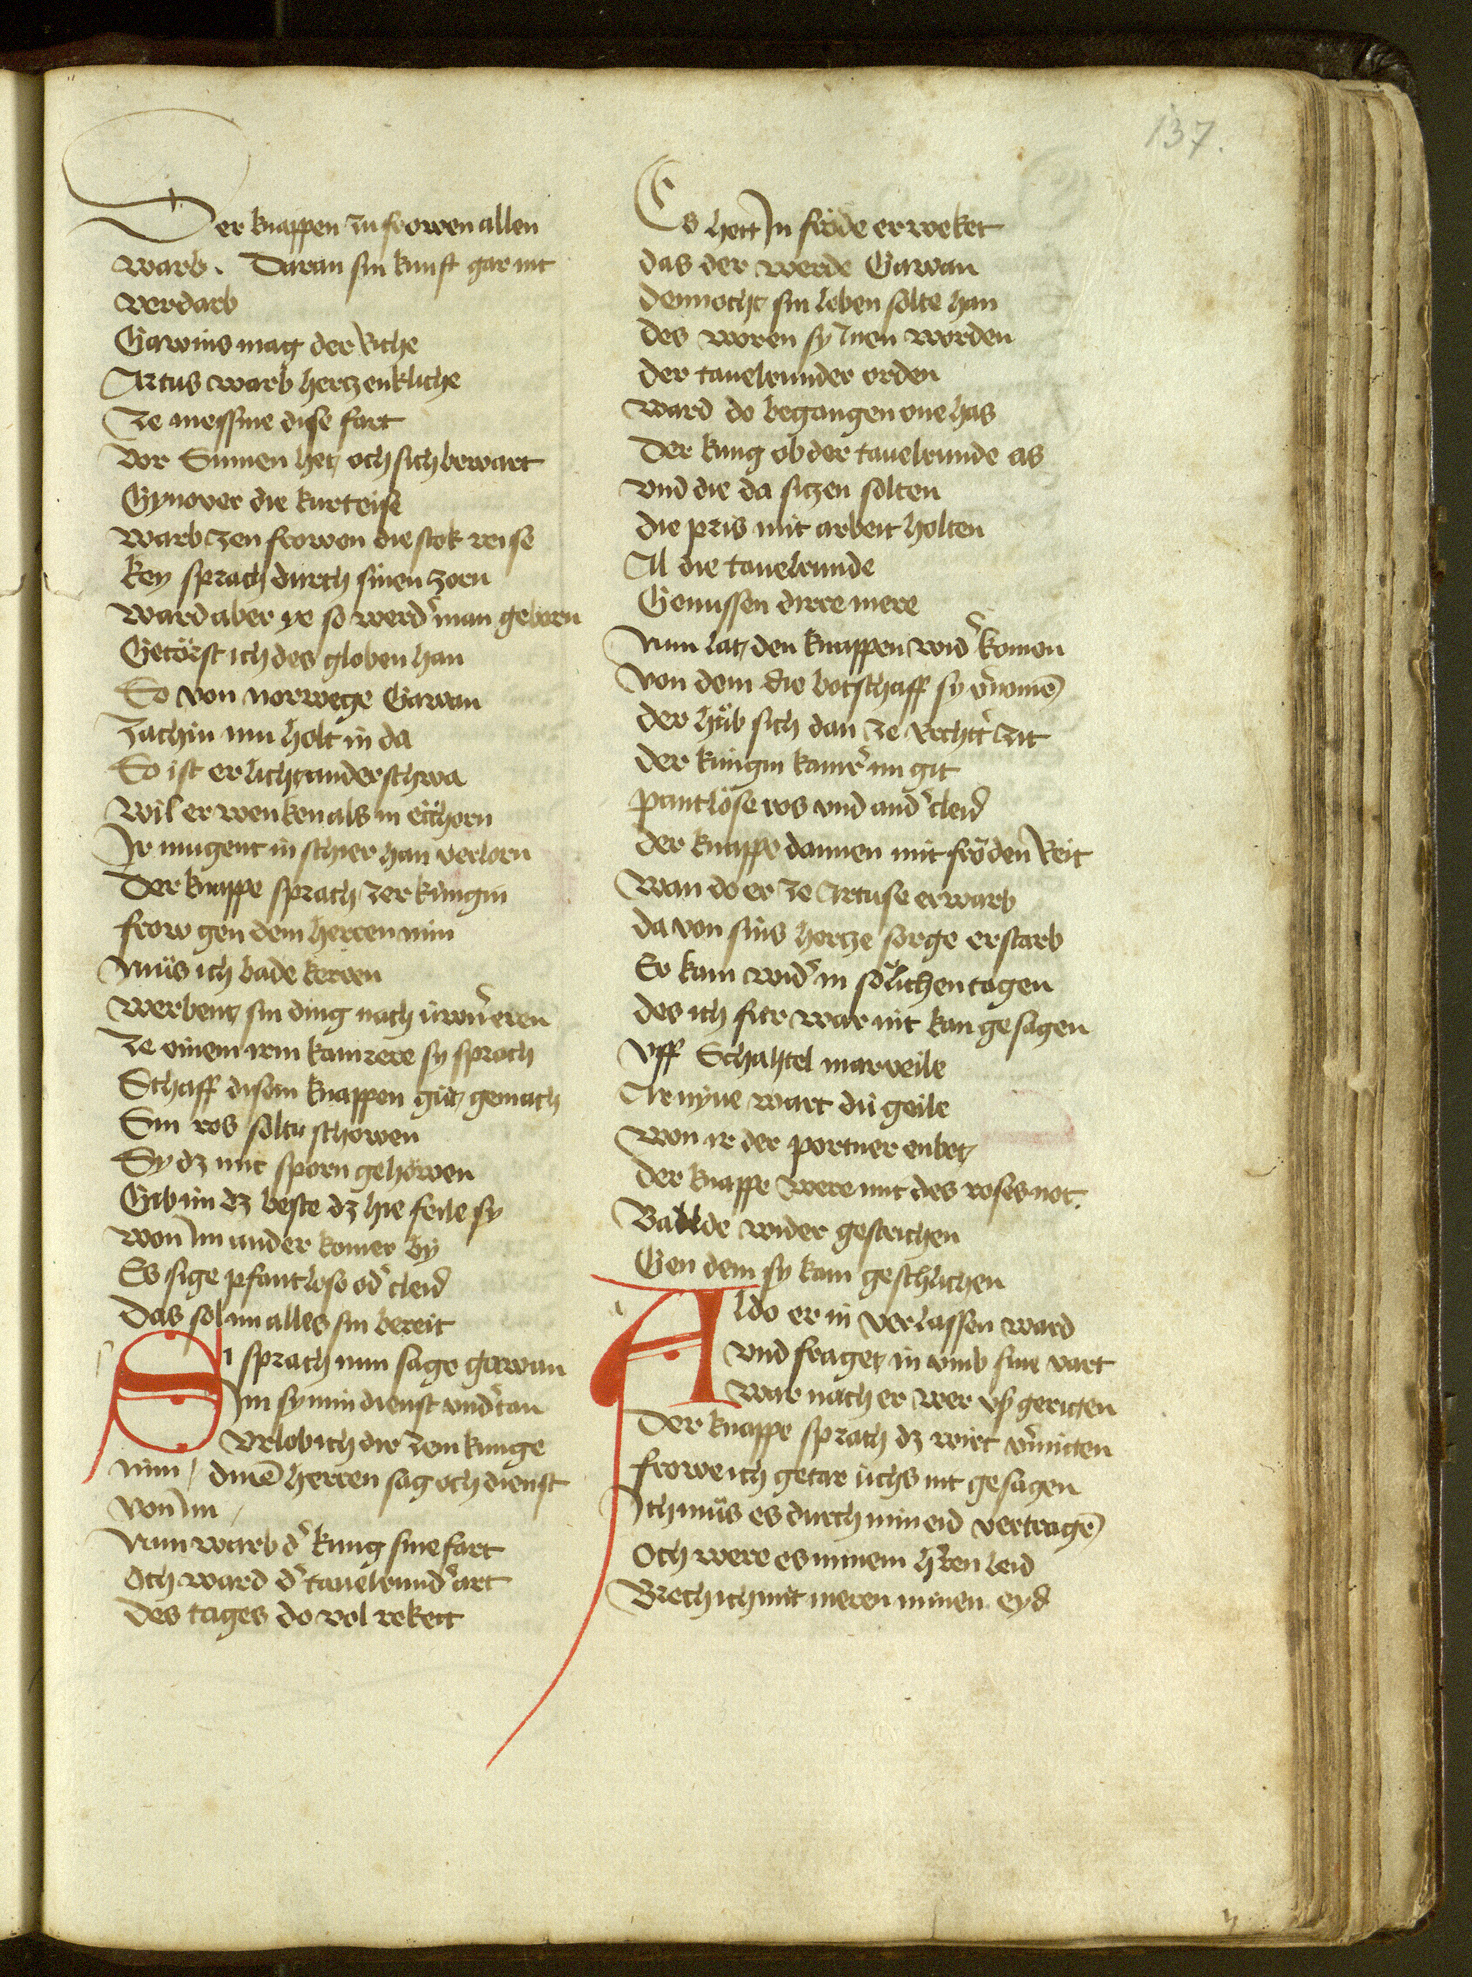 137.
Der knappen zu frowen allen
warb. Daran sin kunst gar nit
verdarb
Gawins mag der riche
Artus warb hertzenkliche
Ze messnie dise fart
Vor Sumen het och sich bewart
Gynover die kurteise
warb zen frowen die stoltz reise
Key sprach durch sinen zorn
ward aber ye so werd̕ man geborn
Getörst ich des globen han
So von norwege Gawan
Zachin nun holt in da
So ist er licht anderschwa
wil er wenken als in eichorn
Ir mugent in schier han verlorn
Der knappe sprach zer kúngin
frow gen dem herren min
Mǔs ich balde keren
werbent sin ding nach úwn̕ eren
Ze einem irm kamrere sy sprach
Schaff disem knappen gǔt gemach
Sin ros soltu schowen
Sy dz mit sporn gehöwen
Gib im dz beste dz hie feile sy
won Im ander komer by
Es sige pfantlose od̕ cleid
Das sol im alles sin bereit
Si sprach nun sage gawan
Im sy min dienst vnd̕tan
Vrlob ich dir zem kunge
nim / dinē herren sag och dienst
von Im /
Nun warb d̕ kung sine fart
Och ward d̕ tauelrund̕ art
des tages do vol reket
Es hett In fröde erweket
das der werde Gawan
dennocht sin leben solte han
des woren sy Inen worden
der tauelrunder orden
ward do begangen one has
Der kung ob der tauelrunde as
vnd die da sitzen solten
die pris mit arbeit holten
Al die tauelrunde
Genussen dirre mere
Nun lat den knappen wid̕ komen
Von dem die botschaff sy v̕nomē
der hǔb sich dan ze recht̕ zit
der kúngin kamr̕ im git
pantlöse ros vnd and̕ cleid
der knappe dannen mit fröden reit
wan do er ze Artuse erwarb
da von sins hertze sorge erstarb
Er kam wid̕ in sölichen tagen
des ich fúr war nit kan gesagen
vff Schahtel marveile
Arnyve wart dú geile
won ir der portner enbot
der knappe were mit des roses not.
Balde wider gestrichen
Gen dem sy kam geschlichen
Aldo er in verlassen ward
vnd fraget in vmb sine vart
war nach er wer vs geritten
Der knappe sprach dz wirt v̕mitten
frowe ich getar úchs nit gesagen
Ich mǔs es durch min eid vertragē
Och were es minem h̕ren leid
Brech ich mit meren minen eyd